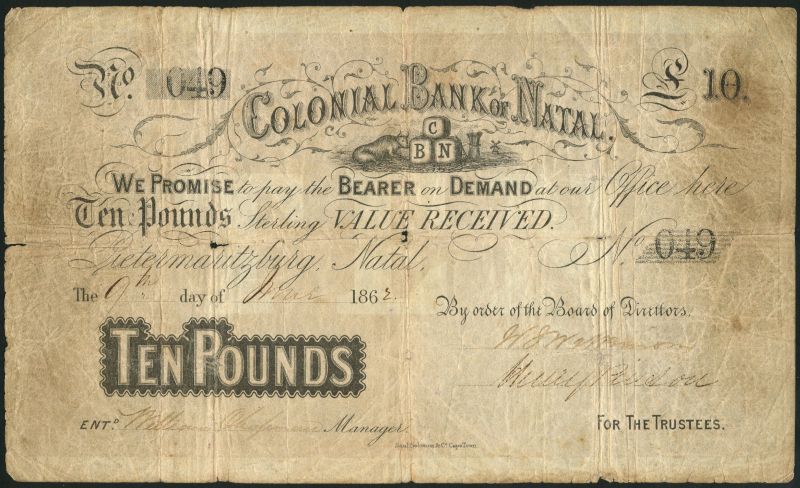 No. 049
£10.
COLONIAL BANK OF NATAL.
C
B N
WE PROMISE to pay the BEARER on DEMAND at our Office here
Ten Pounds Sterling VALUE RECEIVED.
No 049
Pietermaritzburg, Natal.
The 9th day of 1862.
By order of the Board of Directors.
TEN POUNDS
ENTD. William Chapman Manager.
FOR THE TRUSTEES.
Saul Solomon & Co. Cape Town.